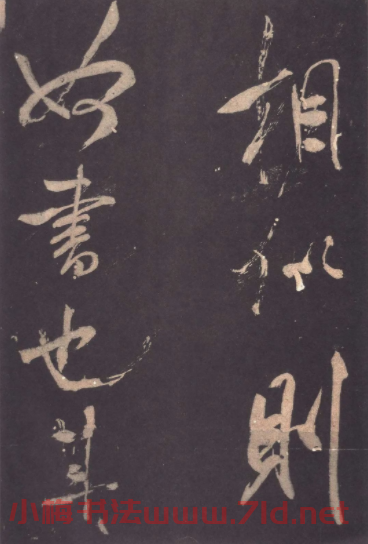 相似則
奴書也其
书法www.7ld.net